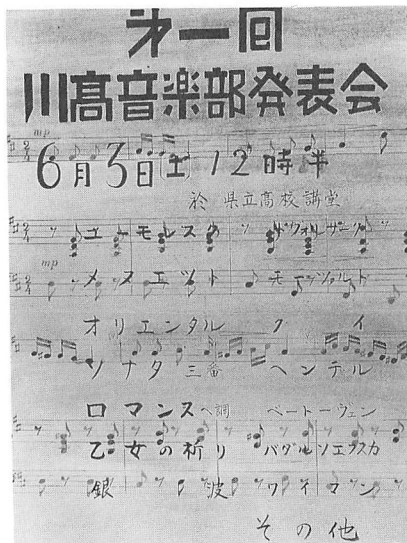 才一回
川髙音楽部発表会
mp
6月3日(土)12時半
於 県立高校講堂
ユーモレスク ドヴォルザーク
mp
メヌエット モーツァルト
オリエンタル クイ
ソナタ三番 ヘンデル
ロマンスヘ調 ベートーヴェン
乙女の祈り バダルソエフスカ
銀波 ワイマン
その他